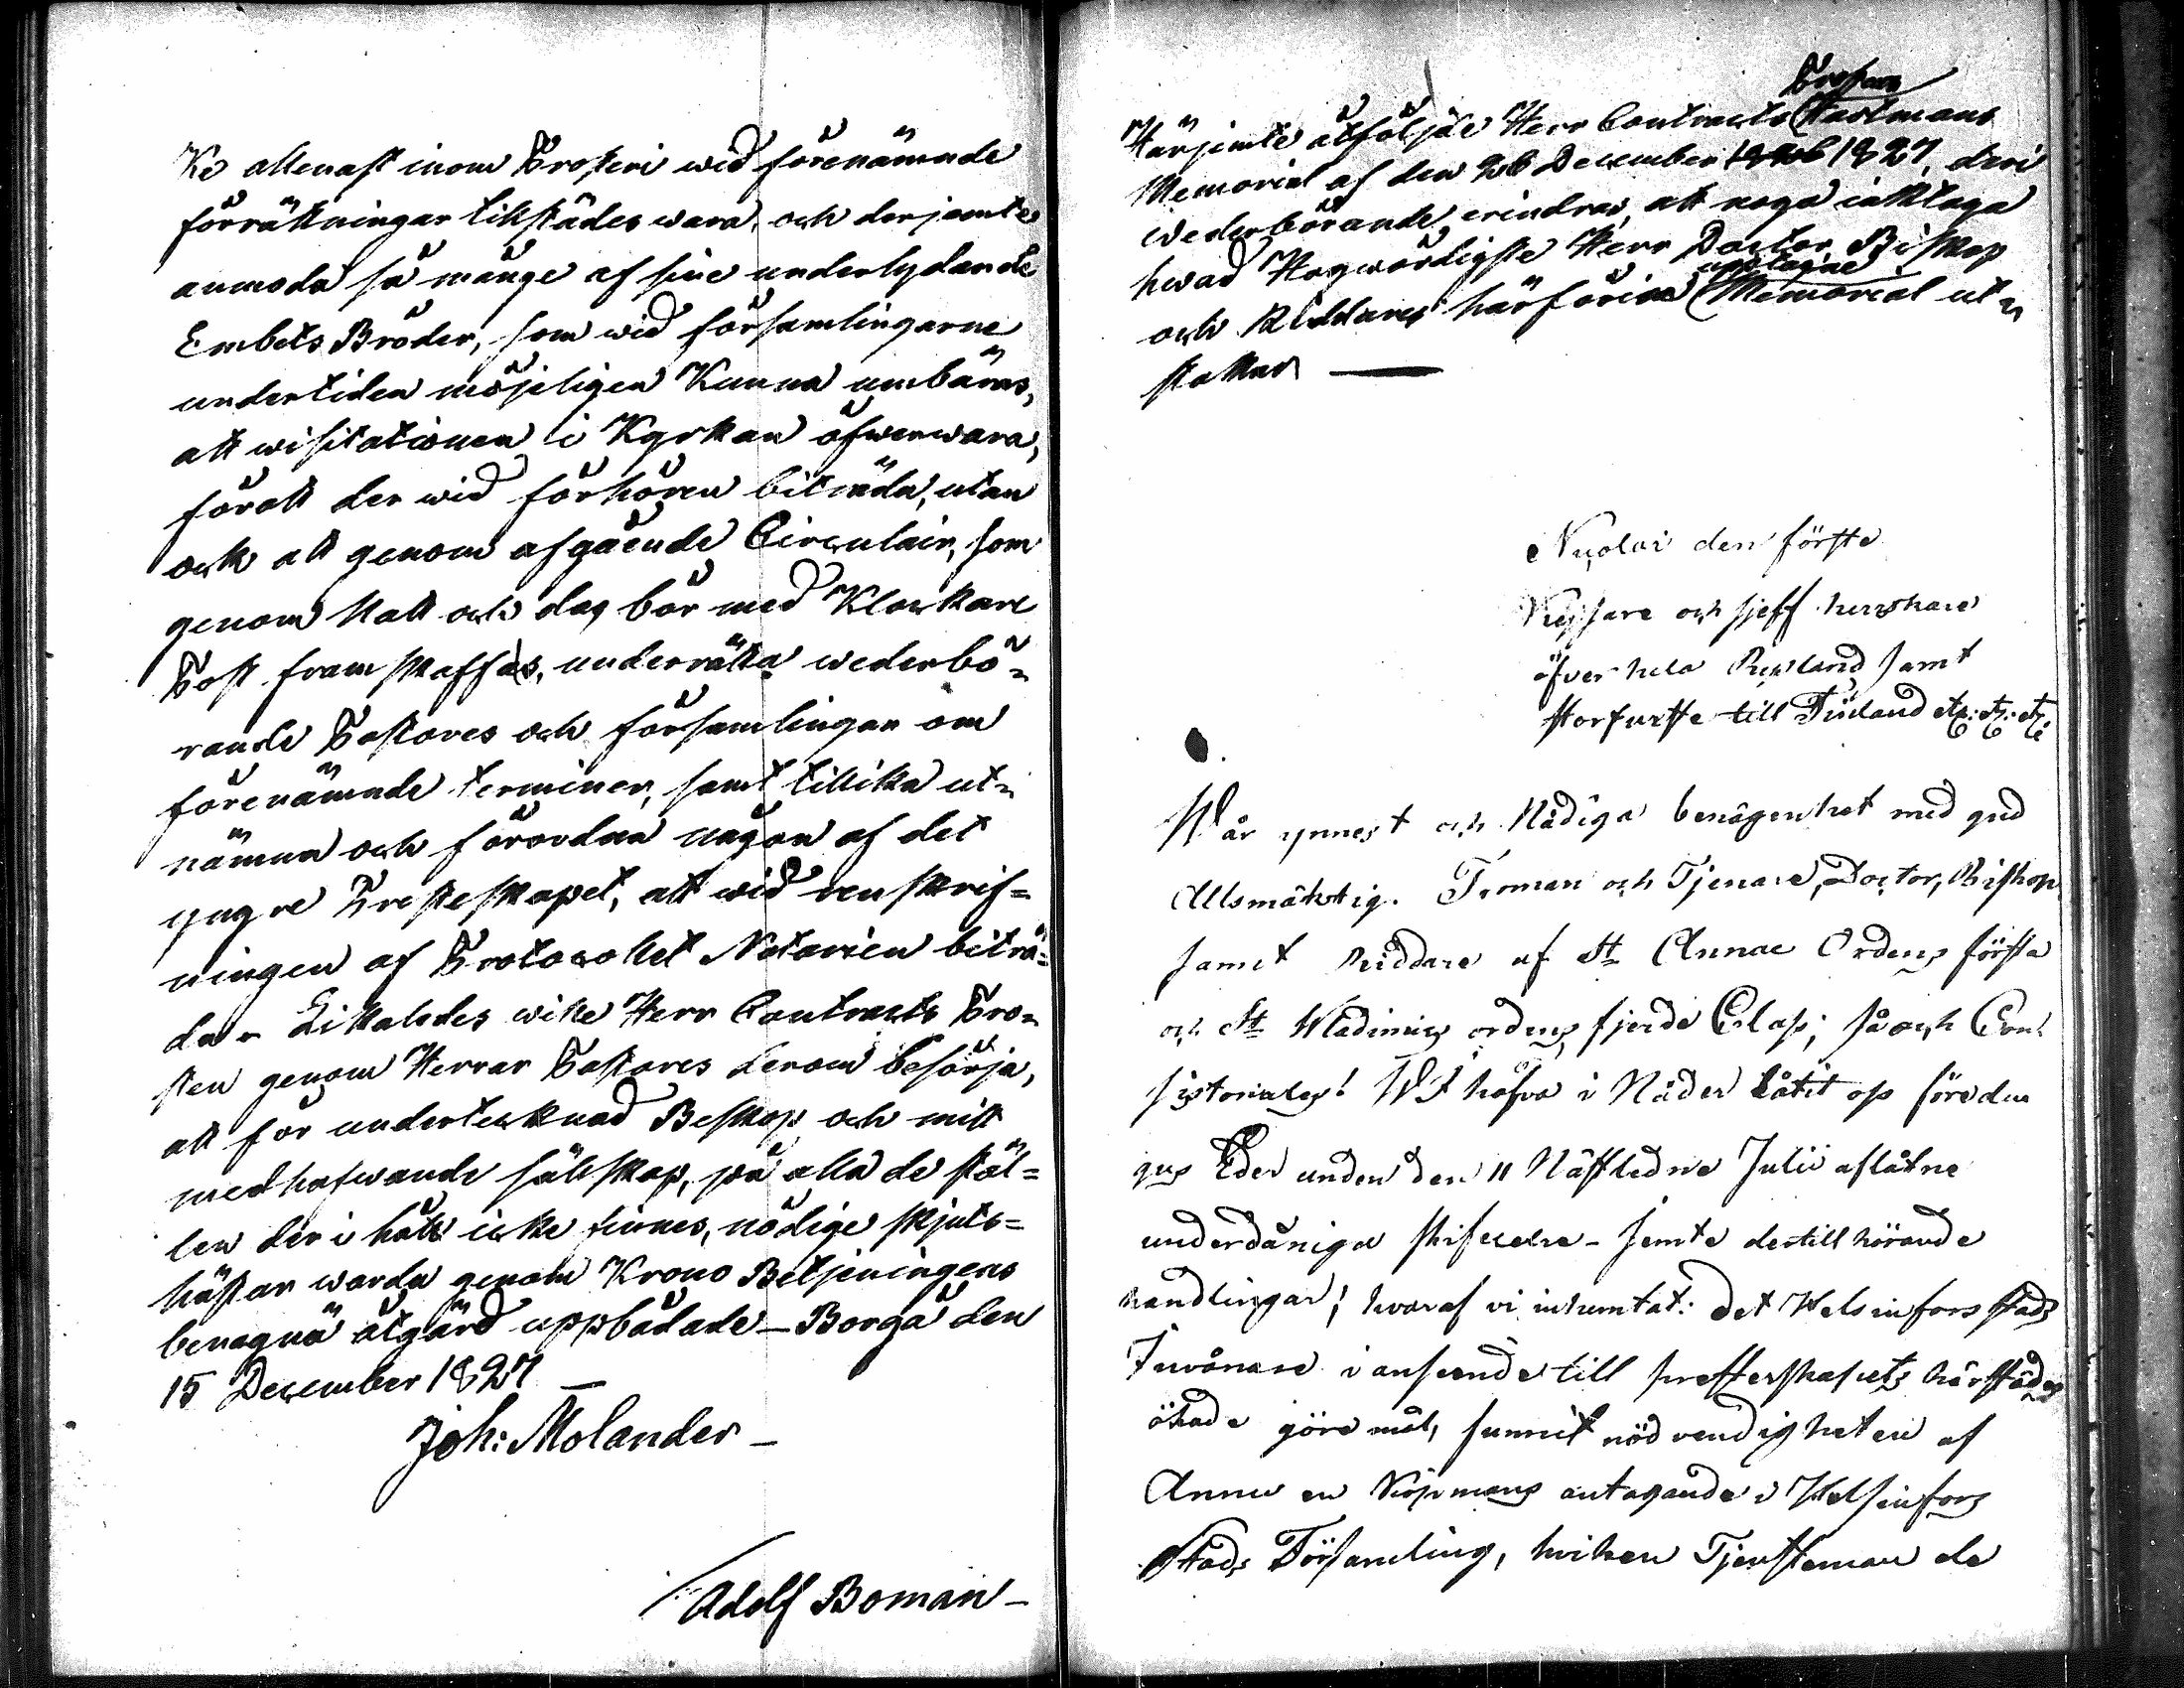 Ke allenast inom Prosteri wid förenämnde
förrättningar tillstädes wara, och derjemte
anmoda så mänge af sine underlydande
Embets Bröder, som wid församlingarne
undertiden möjeligen Kunna umbäras,
att wisitationen i Kyrkan öfwerwara,
föratt der wid förhören biträda, utan
ock att genom afgående Circulair, som
genom natt och dag bör med Klockare
Post fram skaffas, underrätta wederbö=
rande Pastores och församlingar om
förenämnde terminer, samt tillika ut=
nämna och förordna någon af det
yngre Presteskapet, att wid renskrif=
ningen af Protocollet Notarien biträ=
da - Likaledes wille Herr Contracts Pro=
sten genom Herrar Pastores derom besörja,
att för undertecknad Beskop och mitt
medhafwande sällskap, på alla de stäl=
len der i håll icke finnes, nödige skjuts=
hästar warda genom Krono Betjeningens
benägna åtgärd uppbådade - Borgå den
15 December 1827 —
Joh: Molander —
Adolf Boman —
Prosten
Härjemte åtföljde Herr Contracts Hartmans
Memorial af den 26 December 1827, deri
wederbörande erindras, att noga iakttaga
hwad Högwördigste Herr Doctor Biskop
upptagne
och Riddares härföriae Memorial ut=
stakar —
Nicolai den förste
Kejsare och sjelf herrskare
öfver hela Ryssland samt
storfurste till Finland etc: etc: etc
Wår ynnest och Nådiga benägenhet med gud
Allsmäktig. Troman och Tjenare, Doctor, Biskop
samt Riddare af St Annae Ordens första
och St Wladimirs ordens fjerde Clas; så och Con
sistoriales! Wi hafva i Nåder låtit op föredra
gas Eder under den 11 Nästledne Julii aflåtne
underdåniga skifvelse - jemte dertill hörande
handlingar; hvaraf vi inhemtat: det Helsinfors stads
Invånare i anseende till presterskapets härstädes
ökade göre mål, funnit nödvendigheten af
Annu en Köpmans antagande i Helsinfors
stads Församling, hvilken Tjensteman de